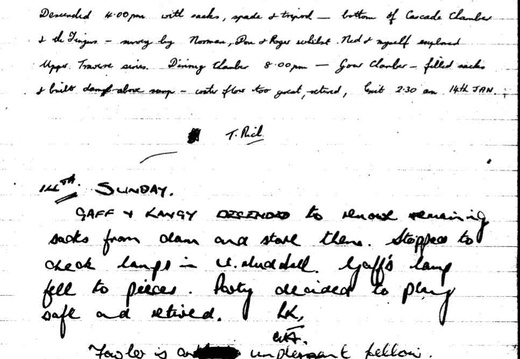 Descended 4.00pm with sacks, spade & tripod — bottom of Cascade Chamber
& the Fingers – survey by Norman, Don & Roger whilst Ned & myself explored
Upper Traverse series. Dining Chamber 8.00pm — Gour Chamber – filled sacks
& built dam above sump – water flow too great, retired, Exit 2.30 am 14th JAN.
T.
14TH SUNDAY.
GAFF & LANGY DECENDED to remove remaining
sacks from dam and stow them. Stopped to
check lamps in U. Mudhall. Gaff's lamp
fell to pieces. Party decided to play
safe and retired. LK,
Fowler is an unpleasant fellow.